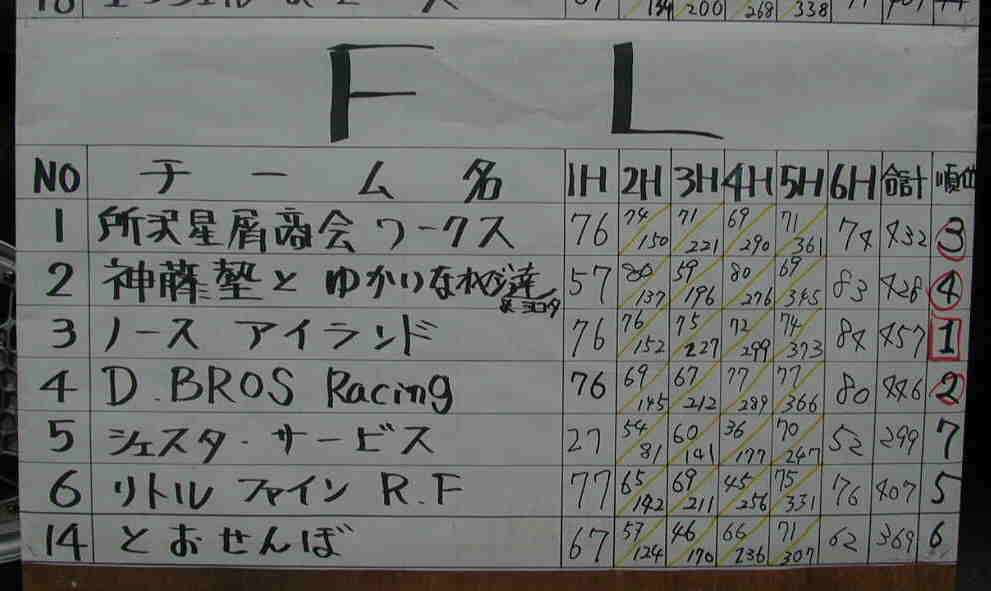 134 200 268 338
F L
NO チーム名 1H 2H 3H 4H 5H 6H 合計 順位
1 所沢星屑商会ワークス 76 74 150 71 221 69 290 71 361 74 432 3
2 神藤塾と ゆかいな 達 57 80 137 59 196 80 276 69 345 83 428 4
3 ノース アイランド 76 76 152 75 227 72 299 74 373 84 457 1
4 D.BROS Racing 76 69 145 67 212 77 289 77 366 80 446 2
5 シェスタ・サービス 27 54 81 60 141 36 177 70 247 52 299 7
6 リトル ファイン R.F 77 65 142 69 211 45 256 75 331 76 407 5
14 とおせんぼ 67 57 124 46 170 66 236 71 307 62 369 6